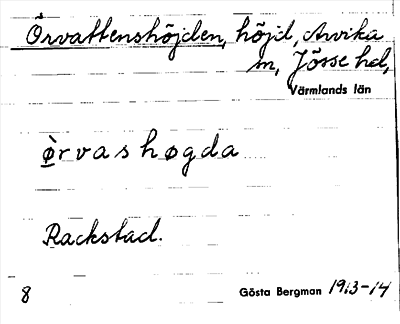 Örvattenshöjden, höjd, Arvika
sn, Jösse hd,
Värmlands län
ø̀rvashøgda
Rackstad.
8
Gösta Bergman 1913-14